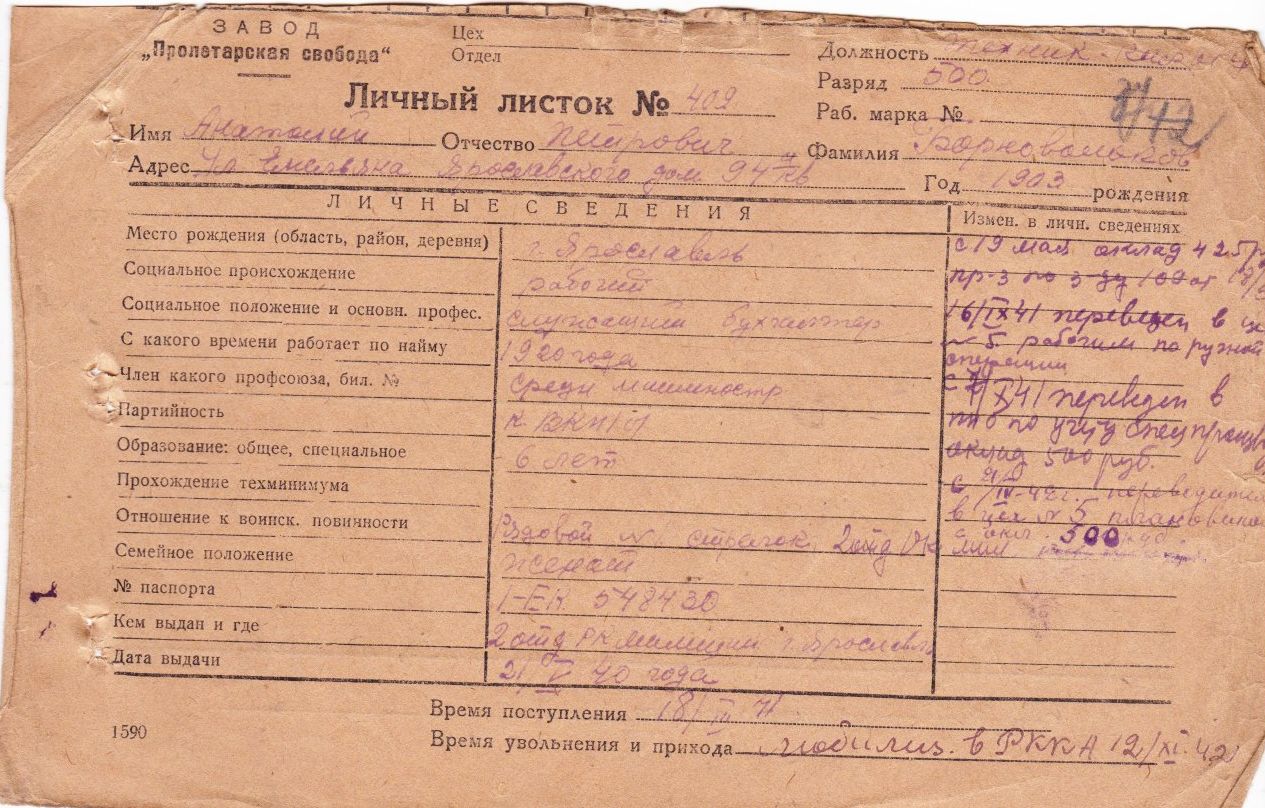 ЗАВОД
„Пролетарская свобода“
Цех
Отдел
Должность Техник
Разряд 500
Раб. марка №
Личный листок № 409
Имя Анатолий Отчество Петрович Фамилия Борноволоков
Адрес Ул Емельяна Ярославского дом 94 кв
Год 1903 рождения
ЛИЧНЫЕ СВЕДЕНИЯ
Измен. в личн. сведениях
Место рождения (область, район, деревня) г. Ярославль
Социальное происхождение рабочий
Социальное положение и основн. профес. служащий бухгалтер
С какого времени работает по найму 1920 года
Член какого профсоюза, бил. № средн машиностр
Партийность к ВКП(б)
Образование: общее, специальное 6 лет
Прохождение техминимума
Отношение к воинск. повинности Рядовой стрелок 2 отд
Семейное положение женат
№ паспорта I-ЕК 548430
Кем выдан и где 2 отд РК милиции г. Ярославль
Дата выдачи 21/V 40 года
с 19 мая оклад 425
пр-з по з-ду
16/IX 41 переведен в
№ 5 рабочим по ручной
операции
X 41 переведен в
по учету спец
оклад 500 руб.
с /IV-42г. переводится
в цех № 5
500
Время поступления 18/III 41
Время увольнения и прихода мобилиз. в РККА 12/XI. 42
1590